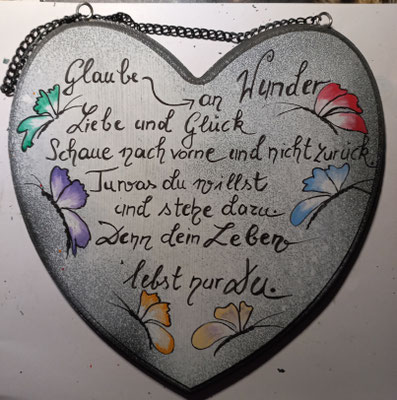 Glaube an Wunder
Liebe und Glück
Schaue nach vorne und nicht zurück.
Tu was du willst
und stehe dazu.
Denn dein Leben
lebst nur du.